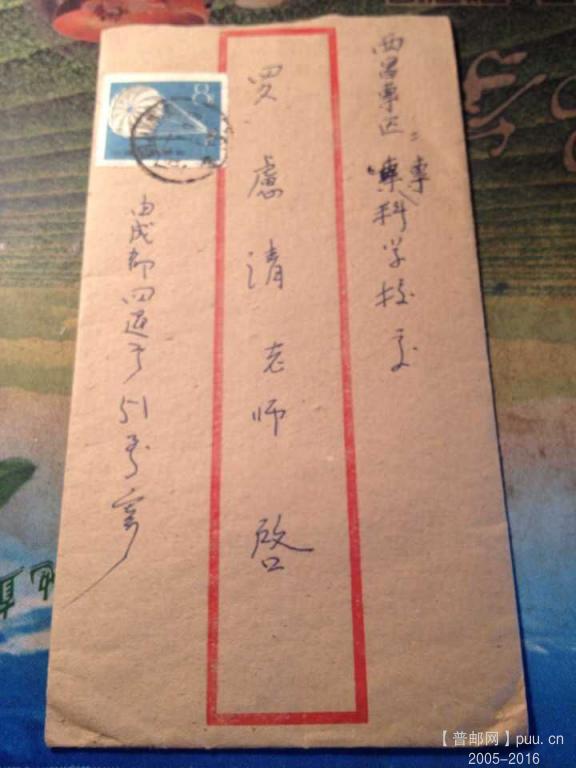 西昌專区
專科学校交
罗慮清老师 啓
由成都四道街51号寄
8
【普邮网】puu.cn
2005-2016